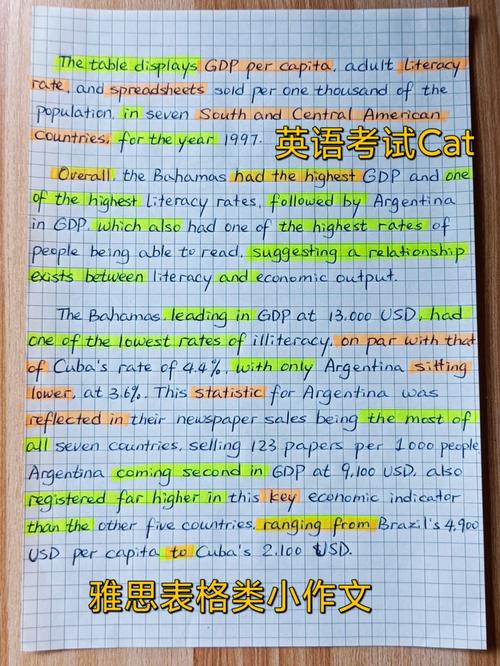 The table displays GDP per capita, adult literacy
rate, and spreadsheets sold per one thousand of the
population, in seven South and Central American
Countries, for the year 1997.
英语考试Cat
Overall, the Bahamas had the highest GDP and one
of the highest literacy rates, followed by Argentina
in GDP, which also had one of the highest rates of
people being able to read, suggesting a relationship
exists between literacy and economic output.
The Bahamas, leading in GDP at 13,000 USD, had
one of the lowest rates of illiteracy, on par with that
of Cuba's rate of 4.4%, with only Argentina sitting
lower, at 3.6%. This statistic for Argentina was
reflected in their newspaper sales being the most of
all seven countries, selling 123 papers per 1000 people.
Argentina coming second in GDP at 9,100 USD, also
registered far higher in this key economic indicator
than the other five countries, ranging from Brazil's 4,900
USD per capita to Cuba's 2,100 USD.
雅思表格类小作文